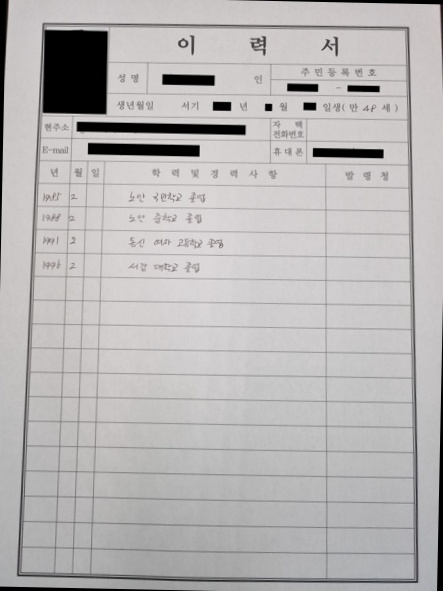 이 력 서
성 명 인 주 민 등 록 번 호
–
생년월일 서기 년 월 일생( 만 48 세 )
현주소 자 택 전화번호
E-mail 휴 대 폰
년 월 일 학 력 및 경 력 사 항 발 령 청
1985 2 노안 국민학교 졸업
1988 2 노안 중학교 졸업
1991 2 동신 여자 고등학교 졸업
1996 2 대학교 졸업